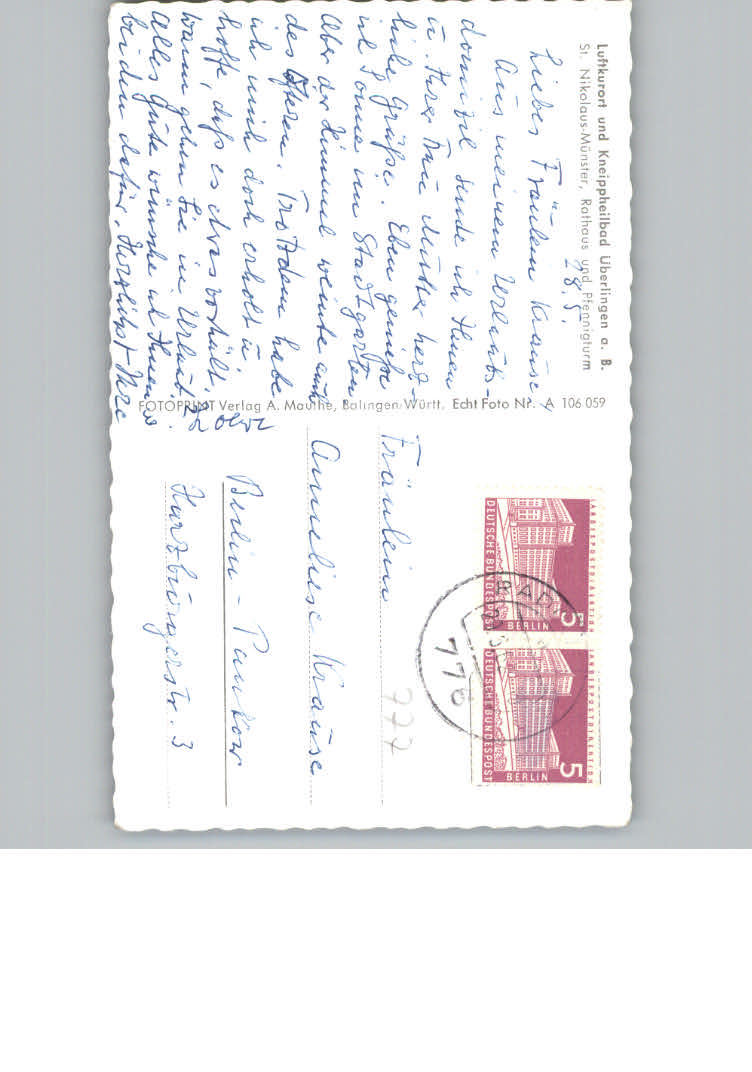 Luftkurort und Kneippheilbad Überlingen a. B.
St. Nikolaus-Münster, Rathaus und Pfennigturm
28.5.
Liebes Fräulein Krause,
Aus meinem Urlaubs-
domizil sende ich Ihnen
u. Ihrer Frau Mutter herz-
liche Grüße. Eben genieße
ich Sonne im Stadtgarten
Aber der Himmel weinte auch
des öfteren. Trotzdem habe
ich mich doch erholt u.
hoffe, daß es etwas vorhält.
Wann gehen Sie in Urlaub?
Alles Gute wünsche ich Ihnen
beiden dafür. Herzlichst Ihre
FOTOPRINT Verlag A. Mauthe, Balingen/Württ. Echt Foto Nr. A 106 059
Fräulein
Anneliese Krause
Berlin - Pankow
Harzburgerstr. 3
777
LANDESPOSTDIREKTION
5
BERLIN
DEUTSCHE BUNDESPOST
LANDESPOSTDIREKTION
5
BERLIN
DEUTSCHE BUNDESPOST
776